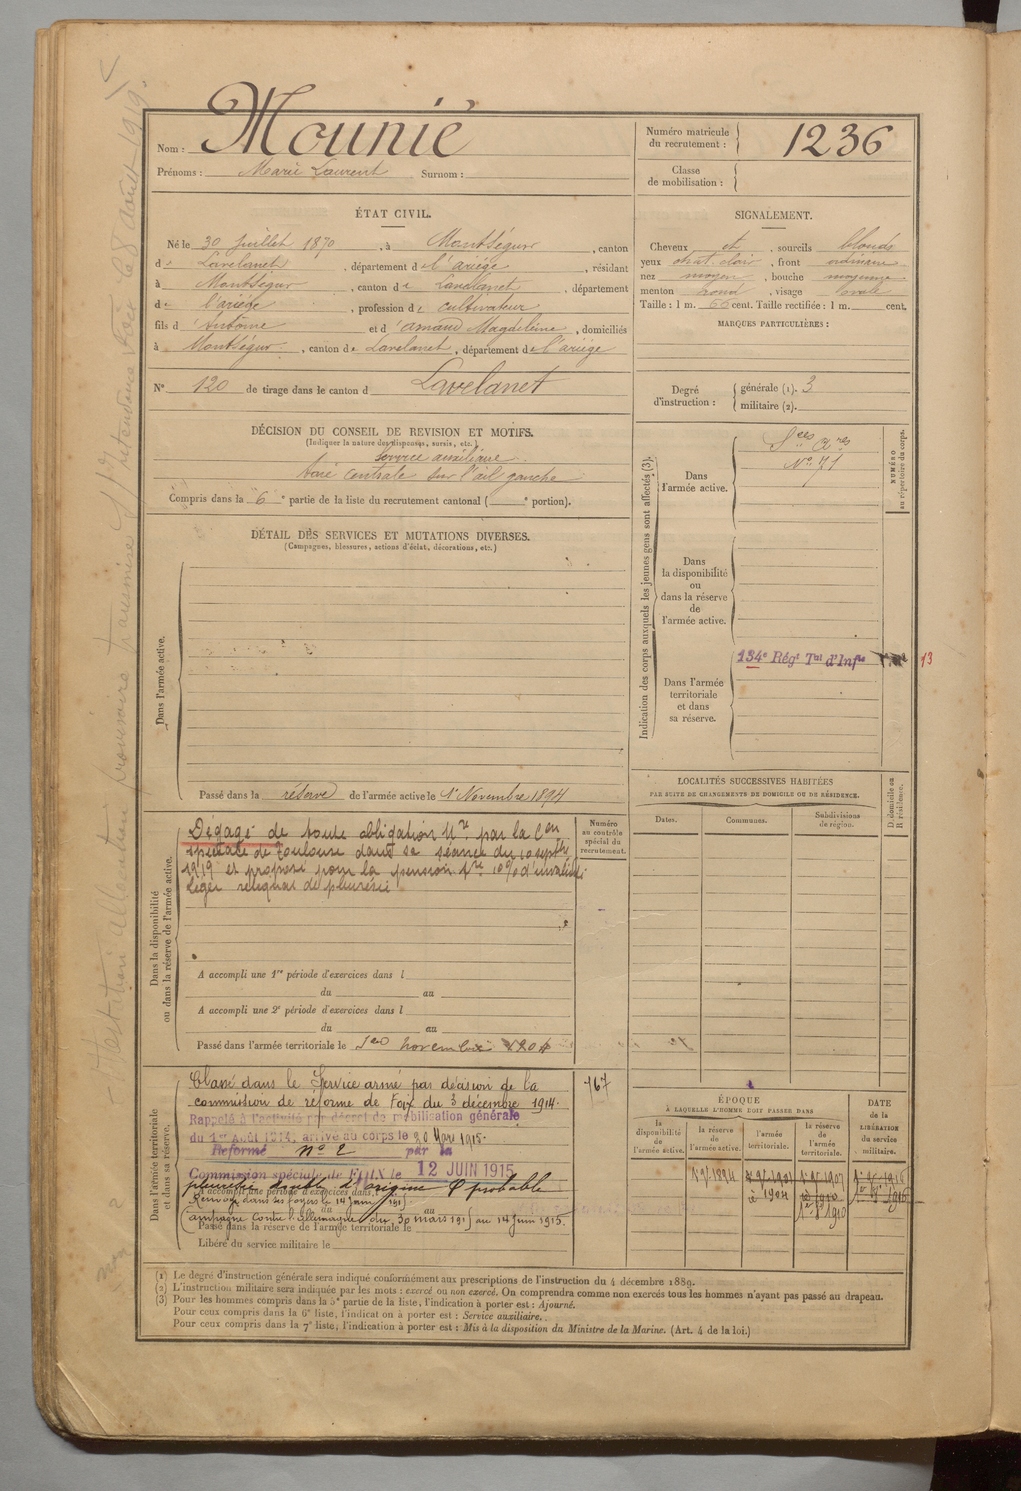 Nom : Mounié
Prénoms : Marie Laurent Surnom :
Numéro matricule du recrutement : 1236
Classe de mobilisation :
ÉTAT CIVIL.
Né le 30 Juillet 1870, à Montségur, canton
de Lavelanet, département de l'ariège, résidant
à Montségur, canton de Lavelanet, département
de l'ariège, profession de cultivateur
fils d'Antoine et d'arnaud Magdeleine, domiciliés
à Montségur, canton de Lavelanet, département de l'ariège
No 120 de tirage dans le canton d Lavelanet
SIGNALEMENT.
Cheveux et, sourcils blonds
yeux chat. clair, front ordinaire
nez moyen, bouche moyenne
menton rond, visage ovale
Taille : 1 m. 66 cent. Taille rectifiée : 1 m. cent.
MARQUES PARTICULIÈRES :
Degré d'instruction : générale (1). 3
militaire (2).
DÉCISION DU CONSEIL DE REVISION ET MOTIFS.
(Indiquer la nature des dispenses, sursis, etc.)
service auxiliaire
taie centrale sur l'œil gauche
Compris dans la 6e partie de la liste du recrutement cantonal ( e portion).
DÉTAIL DES SERVICES ET MUTATIONS DIVERSES.
(Campagnes, blessures, actions d'éclat, décorations, etc.)
Dans l'armée active.
Passé dans la réserve de l'armée active le 1 Novembre 1894
Indication des corps auxquels les jeunes gens sont affectés (3).
NUMÉRO au répertoire du corps.
Dans l'armée active.
Sces
No 71
Dans la disponibilité ou dans la réserve de l'armée active.
Dans l'armée territoriale et dans sa réserve.
134e Régt Tal d'Infie
13
LOCALITÉS SUCCESSIVES HABITÉES
PAR SUITE DE CHANGEMENTS DE DOMICILE OU DE RÉSIDENCE.
Dates. Communes. Subdivisions de région. D. domicile ou R. résidence.
Dans la disponibilité ou dans la réserve de l'armée active.
Numéro au contrôle spécial du recrutement.
Dégagé de toute obligation Mre par la Con
spéciale de Toulouse dans sa séance du 10 septbre
1919 et proposé pour la pension 10% d'invalidité
léger reliquat de pleurésie
A accompli une 1re période d'exercices dans l
du au
A accompli une 2e période d'exercices dans l
du au
Passé dans l'armée territoriale le 1er novembre 1904
Dans l'armée territoriale et dans sa réserve.
Classé dans le Service armé par décision de la
commission de réforme de Foix du 3 décembre 1914.
167
Rappelé à l'activité par décret de mobilisation générale
du 1er Août 1914, arrivé au corps le 30 Mars 1915.
Réformé no 2 par la
Commission spéciale de FOIX le 12 JUIN 1915
pleurésie double d'origine probable
A accompli une période d'exercices dans
Renvoyé dans ses foyers le 14 juin 1915
du au
Campagne contre l'Allemagne du 30 mars 1915 au 14 Juin 1915.
Passé dans la réserve de l'armée territoriale le
Libéré du service militaire le
ÉPOQUE
A LAQUELLE L'HOMME DOIT PASSER DANS
la disponibilité de l'armée active. la réserve de l'armée active. l'armée territoriale. la réserve de l'armée territoriale.
DATE de la LIBÉRATION du service militaire.
(1) Le degré d'instruction générale sera indiqué conformément aux prescriptions de l'instruction du 4 décembre 1889.
(2) L'instruction militaire sera indiquée par les mots : exercé ou non exercé. On comprendra comme non exercés tous les hommes n'ayant pas passé au drapeau.
(3) Pour les hommes compris dans la 5e partie de la liste, l'indication à porter est : Ajourné.
Pour ceux compris dans la 6e liste, l'indication à porter est : Service auxiliaire.
Pour ceux compris dans la 7e liste, l'indication à porter est : Mis à la disposition du Ministre de la Marine. (Art. 4 de la loi.)